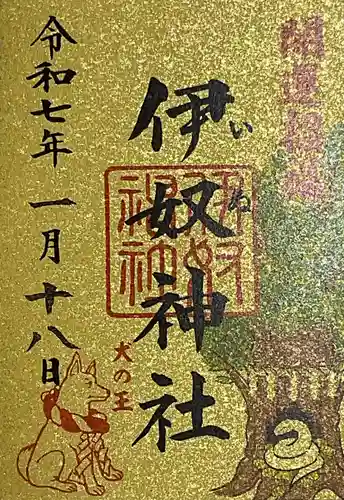 開運招福
伊奴神社
いぬ
犬の王
令和七年 一月十八日